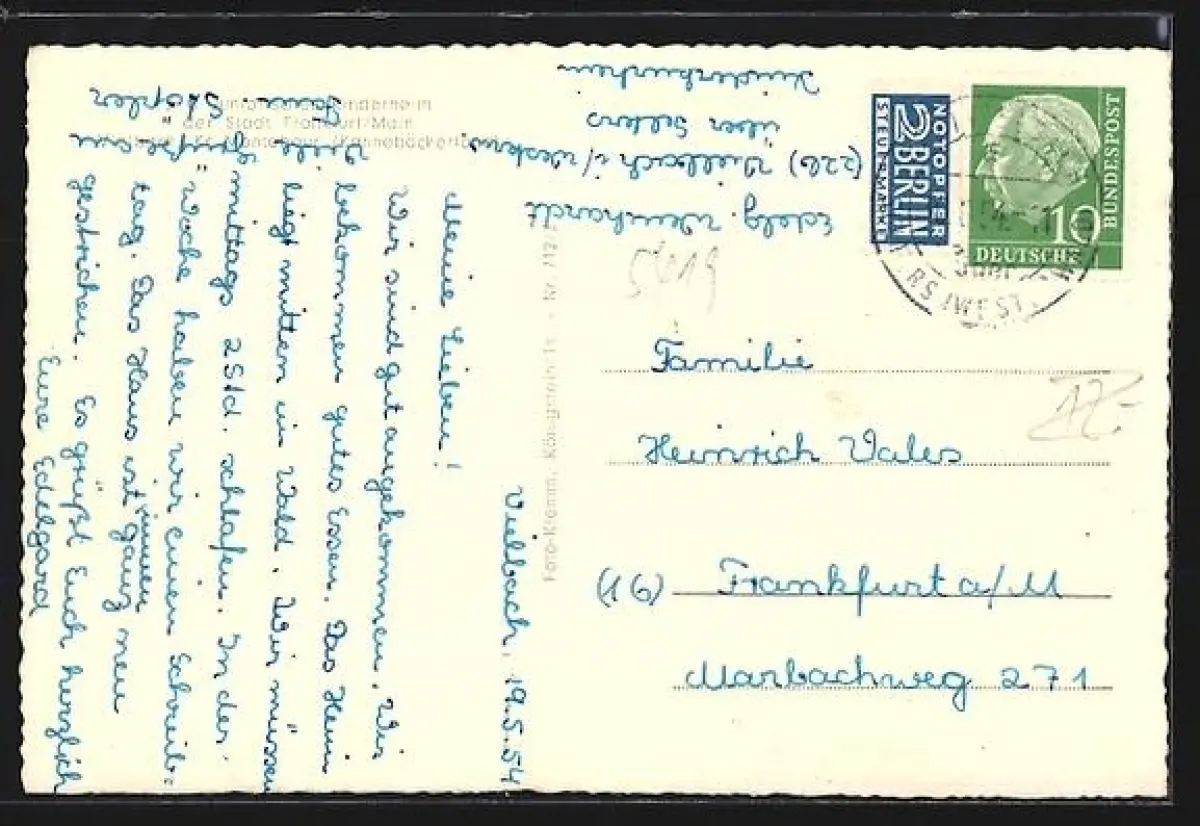 Vielbach, 19.5.54
Meine Lieben!
Wir sind gut angekommen. Wir
bekommen gutes Essen. Das Heim
liegt mitten im Wald. Wir müssen
mittags 2 Std. schlafen. In der
Woche haben wir einen Schreib-
tag. Das Haus ist innen ganz neu
gestrichen. Es grüßt Euch herzlich
Eure Edelgard
Viele
Grüße an
der Stadt Frankfurt/Main
Foto-Klemm, Königstein/Ts. - Nr. 712
Edelg. Weinhardt
(22b) Vielbach i/Westerw.
über Selters
Kinderkurheim
NOTOPFER
2 BERLIN
STEUERMARKE
10
DEUTSCHE
BUNDESPOST
ERS (WEST
5419
Familie
Heinrich Vales
(16) Frankfurt a/M
Marbachweg 271
17.-